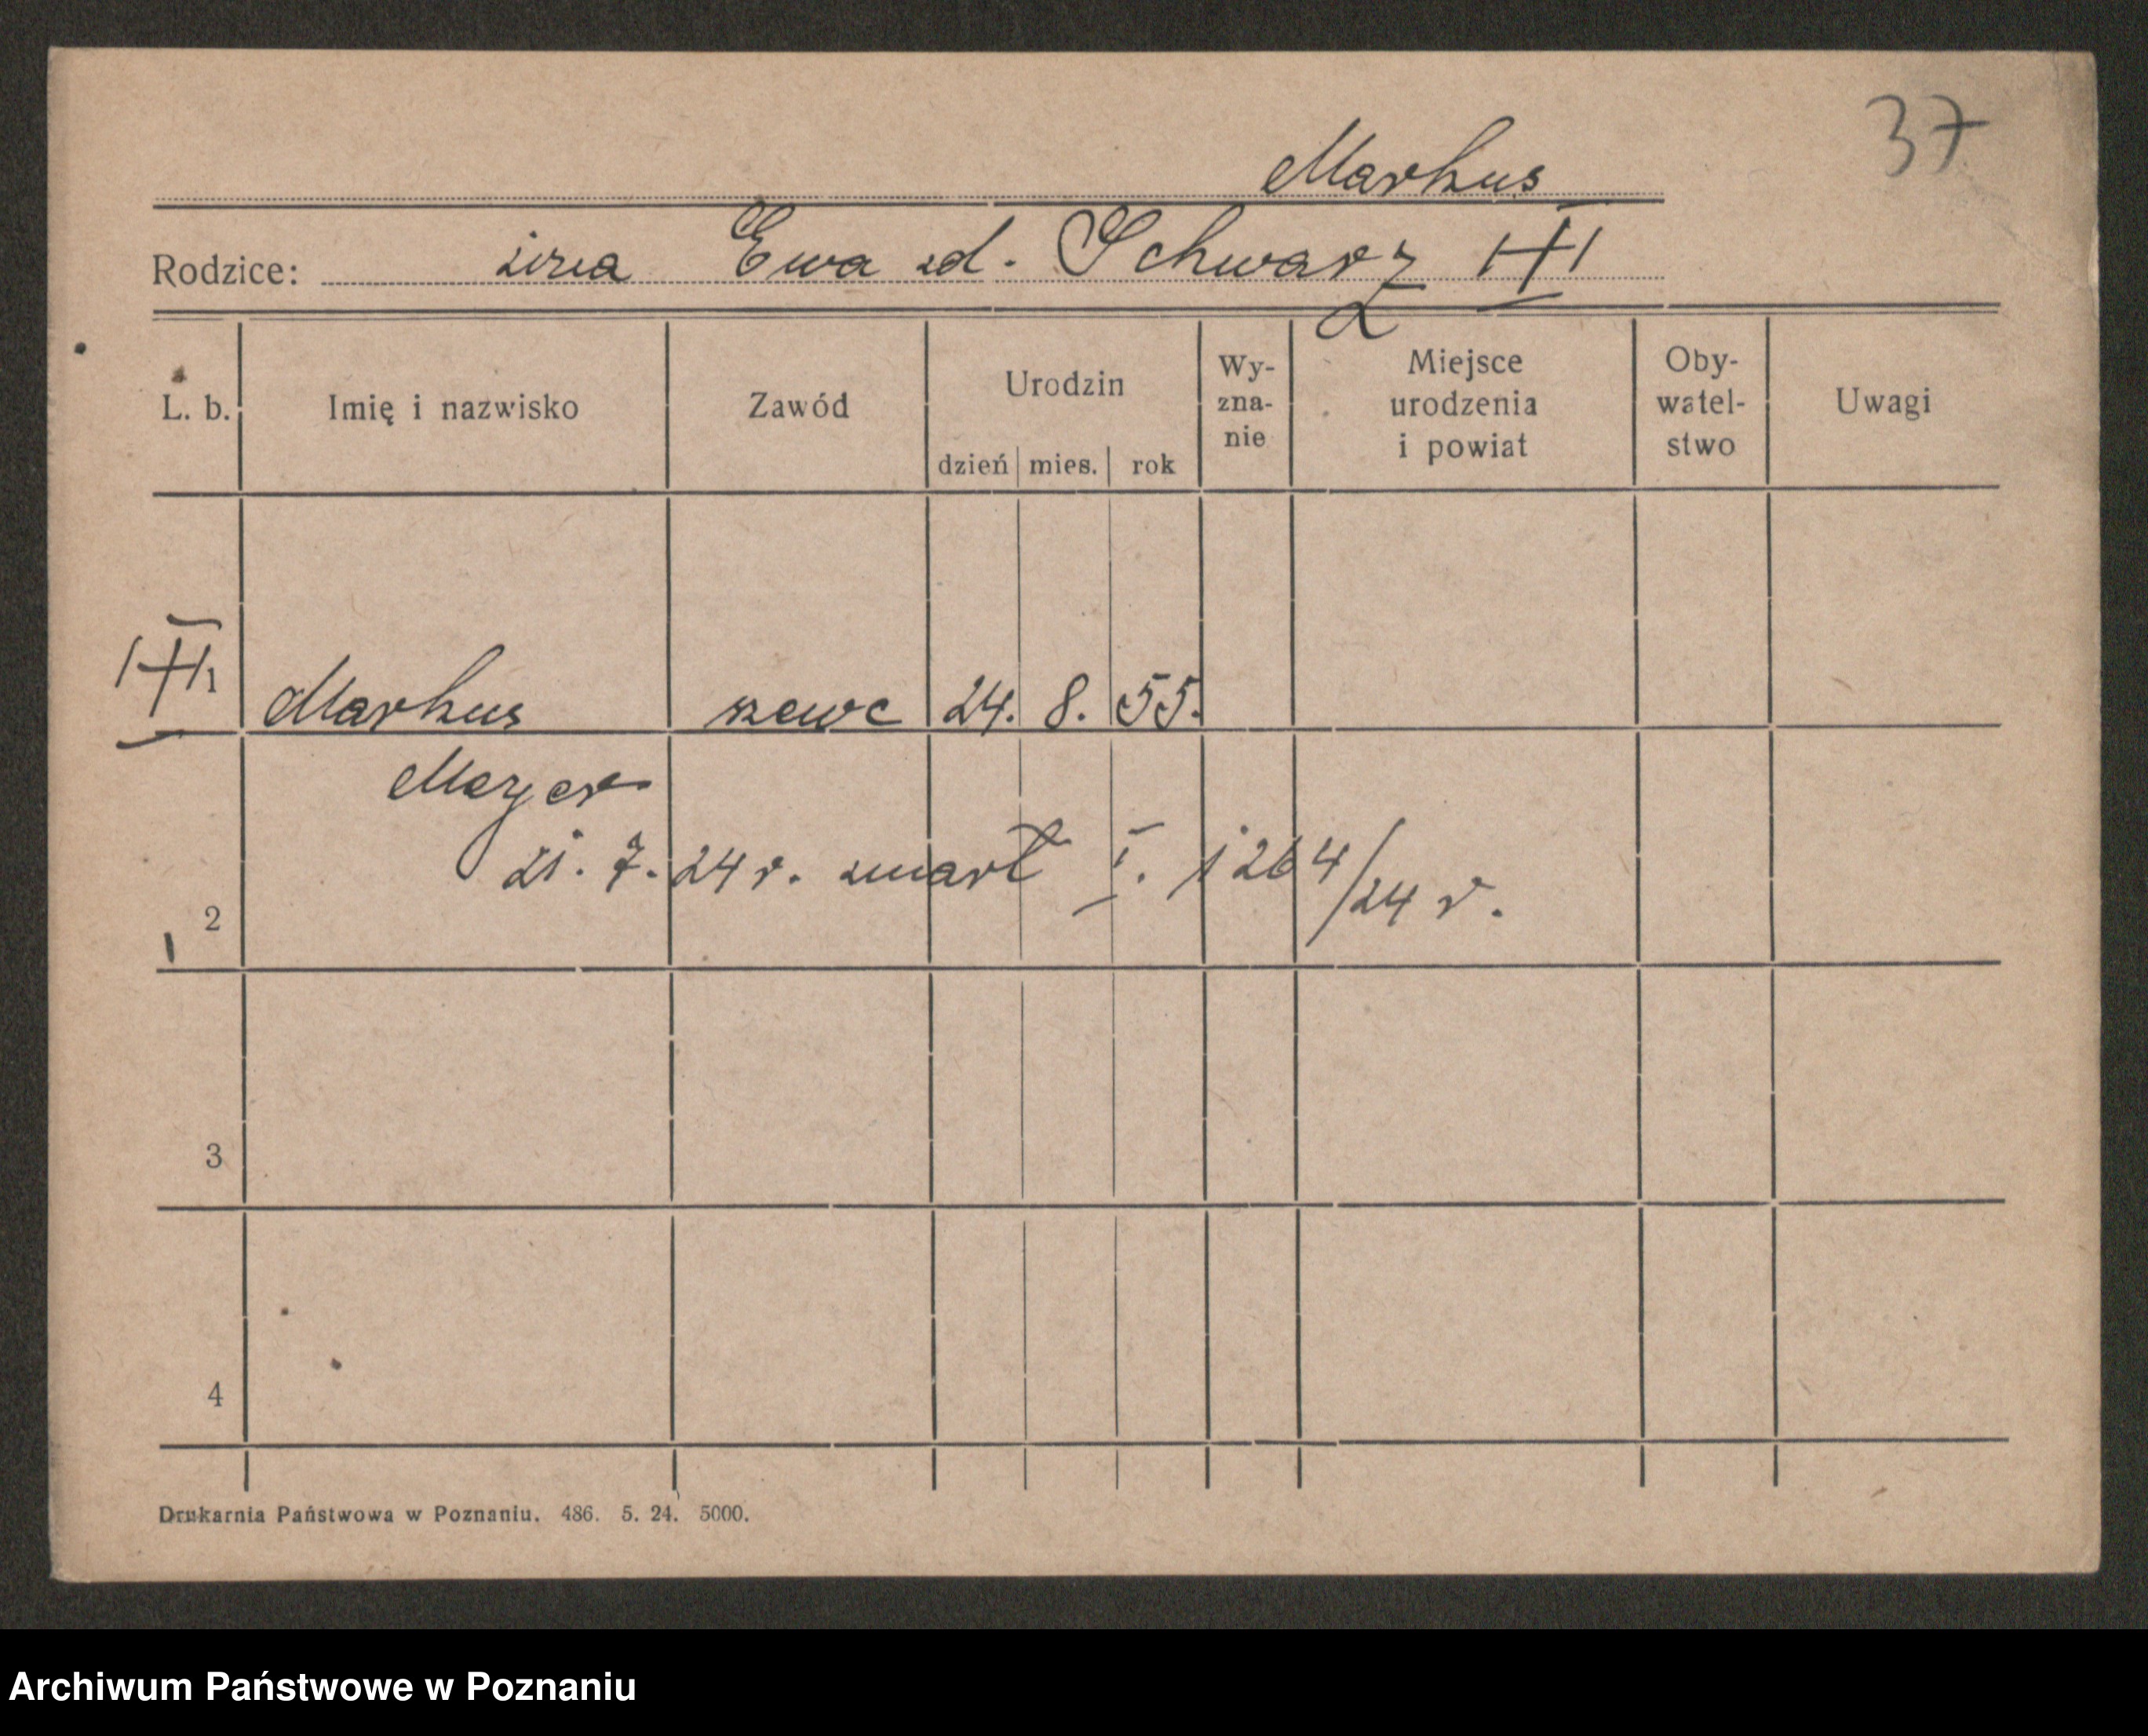 37
Markus
Rodzice: żona Ewa zd. Schwarz
L. b. Imię i nazwisko Zawód Urodzin dzień mies. rok Wy-zna-nie Miejsce urodzenia i powiat Oby-watel-stwo Uwagi
Markus szewc 24. 8. 55.
Meyer
21. 7. 24 r. zmarł I. 1264/24 r.
2
3
4
Drukarnia Państwowa w Poznaniu. 486. 5. 24. 5000.
Archiwum Państwowe w Poznaniu